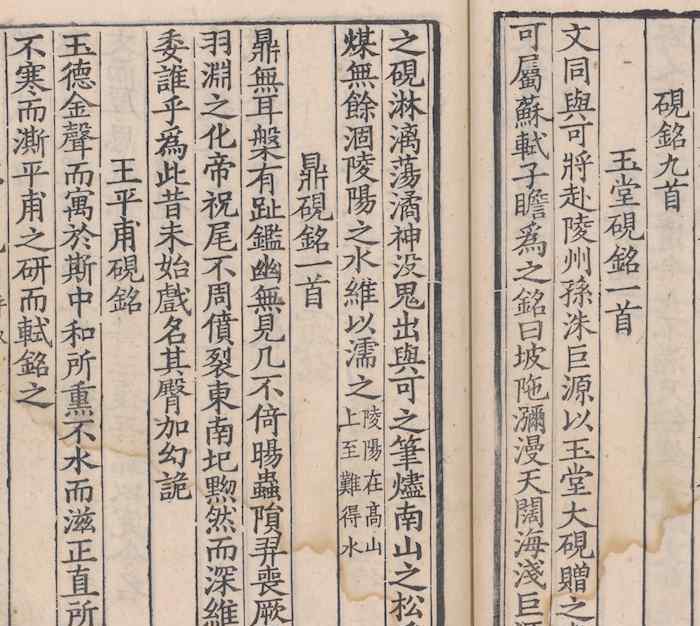 硯銘九首
玉堂硯銘一首
文同與可將赴陵州孫洙巨源以玉堂大硯贈之
可屬蘇軾子瞻爲之銘曰坡陁瀰漫天闊海淺巨源
之硯淋漓蕩潏神没鬼出與可之筆燼南山之松
煤無餘涸陵陽之水維以濡之陵陽在高山上至難得水
鼎硯銘一首
鼎無耳槃有趾鑑幽無見几不倚暘蟲隕羿喪厥
羽淵之化帝祝尾不周僨裂東南圮黝然而深維
委誰乎爲此昔未始戲名其臀加幻詭
王平甫硯銘
玉德金聲而寓於斯中和所熏不水而滋正直所
不寒而澌平甫之研而軾銘之